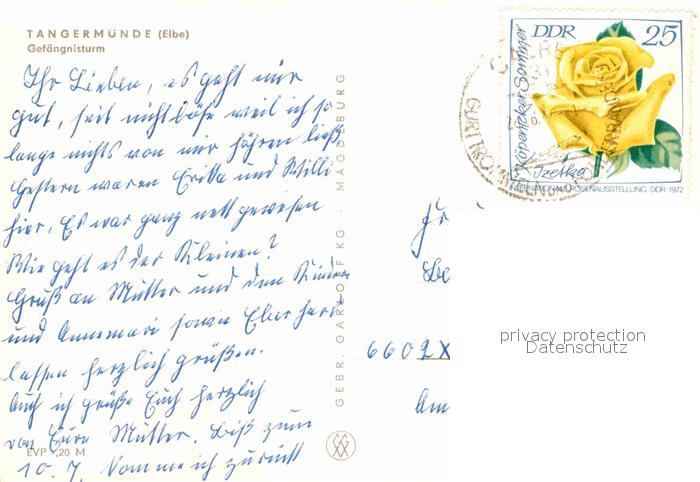 TANGERMÜNDE (Elbe)
Gefängnisturm
Ihr Lieben, es geht mir
gut, seit nicht böse weil ich so
lange nichts von mir hören ließ
Gestern waren Erika und Willi
hier. Es war ganz nett gewesen
Wie geht es der Kleinen?
Gruß an Mutter und den Kinder
und Annemarie sowie Eberhard
lassen herzlich grüßen.
Auch ich grüße Euch herzlich
von Eure Mutter. Biß zum
EVP -,20 M
10. 7. komme ich zurück
GEBR. GARLOFF KG · MAGDEBURG
DDR 25
Köpenicker Sommer
Izetka
INTERNATIONALE ROSENAUSSTELLUNG DDR 1972
6602
Am
privacy protection
Datenschutz